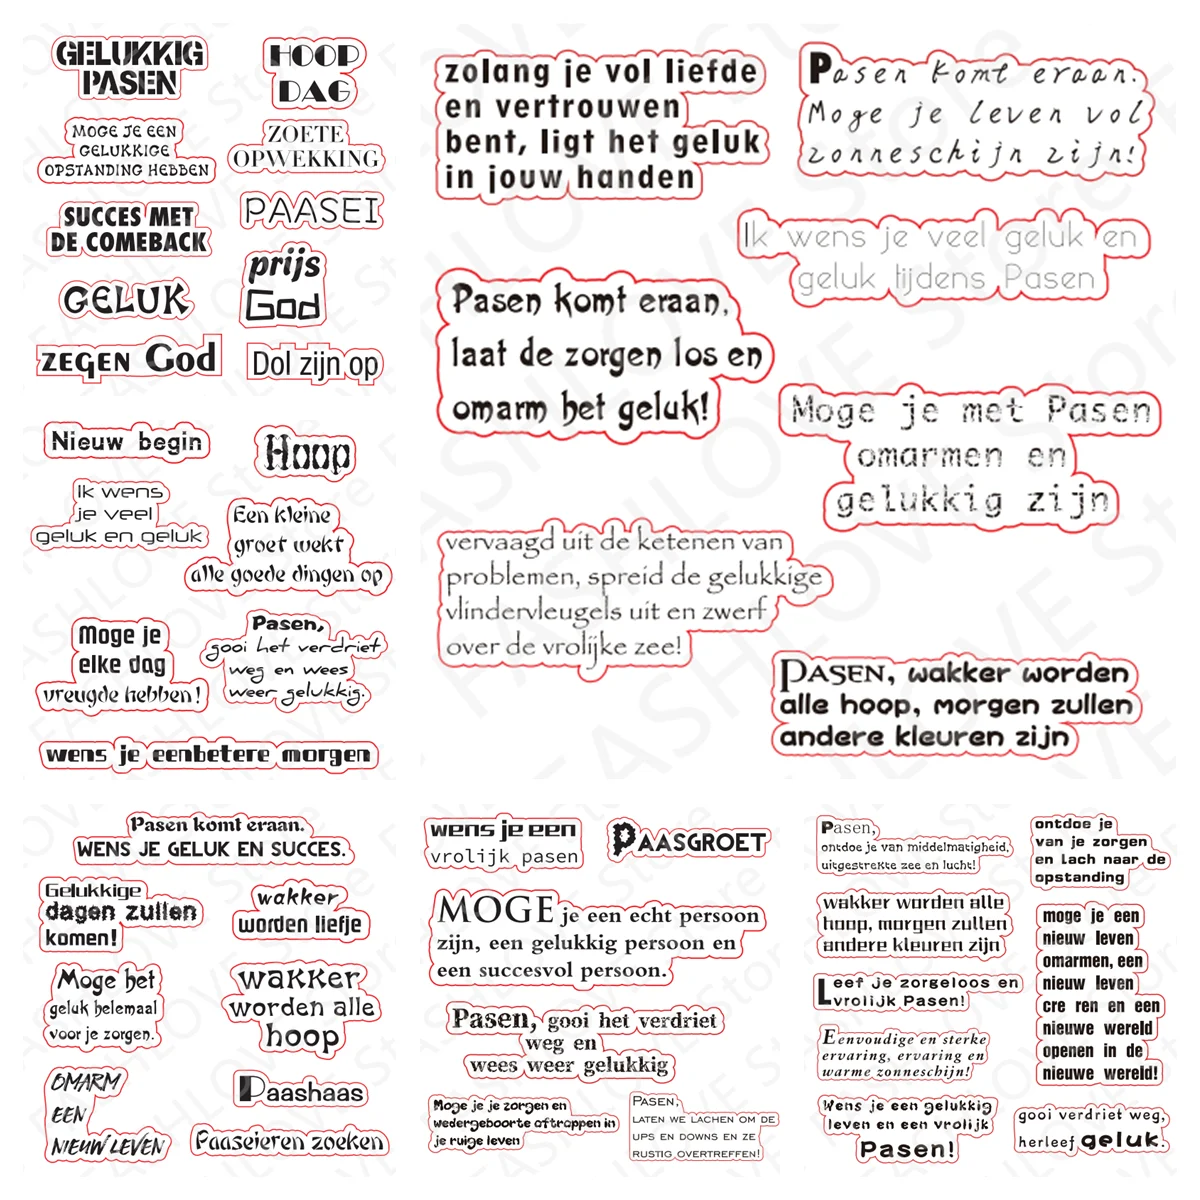 GELUKKIG
PASEN
HOOP
DAG
MOGE JE EEN
GELUKKIGE
OPSTANDING HEBBEN
ZOETE
OPWEKKING
SUCCES MET
DE COMEBACK
PAASEI
GELUK
prijs
God
ZEGEN God
Dol zijn op
zolang je vol liefde
en vertrouwen
bent, ligt het geluk
in jouw handen
Pasen komt eraan.
Moge je leven vol
zonneschijn zijn!
Ik wens je veel geluk en
geluk tijdens Pasen
Pasen komt eraan,
laat de zorgen los en
omarm het geluk!
Moge je met Pasen
omarmen en
gelukkig zijn
vervaagd uit de ketenen van
problemen, spreid de gelukkige
vlindervleugels uit en zwerf
over de vrolijke zee!
PASEN, wakker worden
alle hoop, morgen zullen
andere kleuren zijn
Nieuw begin
Hoop
Ik wens
je veel
geluk en geluk
Een kleine
groet wekt
alle goede dingen op
Moge je
elke dag
vreugde hebben!
Pasen,
gooi het verdriet
weg en wees
weer gelukkig.
wens je eenbetere morgen
Pasen komt eraan.
WENS JE GELUK EN SUCCES.
Gelukkige
dagen zullen
komen!
wakker
worden liefje
Moge het
geluk helemaal
voor je zorgen.
wakker
worden alle
hoop
OMARM
EEN
NIEUW LEVEN
Paashaas
Paaseieren zoeken
wens je een
vrolijk pasen
PAASGROET
MOGE je een echt persoon
zijn, een gelukkig persoon en
een succesvol persoon.
Pasen, gooi het verdriet
weg en
wees weer gelukkig
Moge je je zorgen en
wedergeboorte aftrappen in
je ruige leven
PASEN,
LATEN WE LACHEN OM DE
UPS EN DOWNS EN ZE
RUSTIG OVERTREFFEN!
Pasen,
ontdoe je van middelmatigheid,
uitgestrekte zee en lucht!
wakker worden alle
hoop, morgen zullen
andere kleuren zijn
Leef je zorgeloos en
vrolijk Pasen!
Eenvoudige en sterke
ervaring, ervaring en
warme zonneschijn!
Wens je een gelukkig
leven en een vrolijk
Pasen!
ontdoe je
van je zorgen
en Lach naar de
opstanding
moge je een
nieuw leven
omarmen, een
nieuw leven
cre ren en een
nieuwe wereld
openen in de
nieuwe wereld!
gooi verdriet weg,
herleef geluk.
FASHLOVE Store